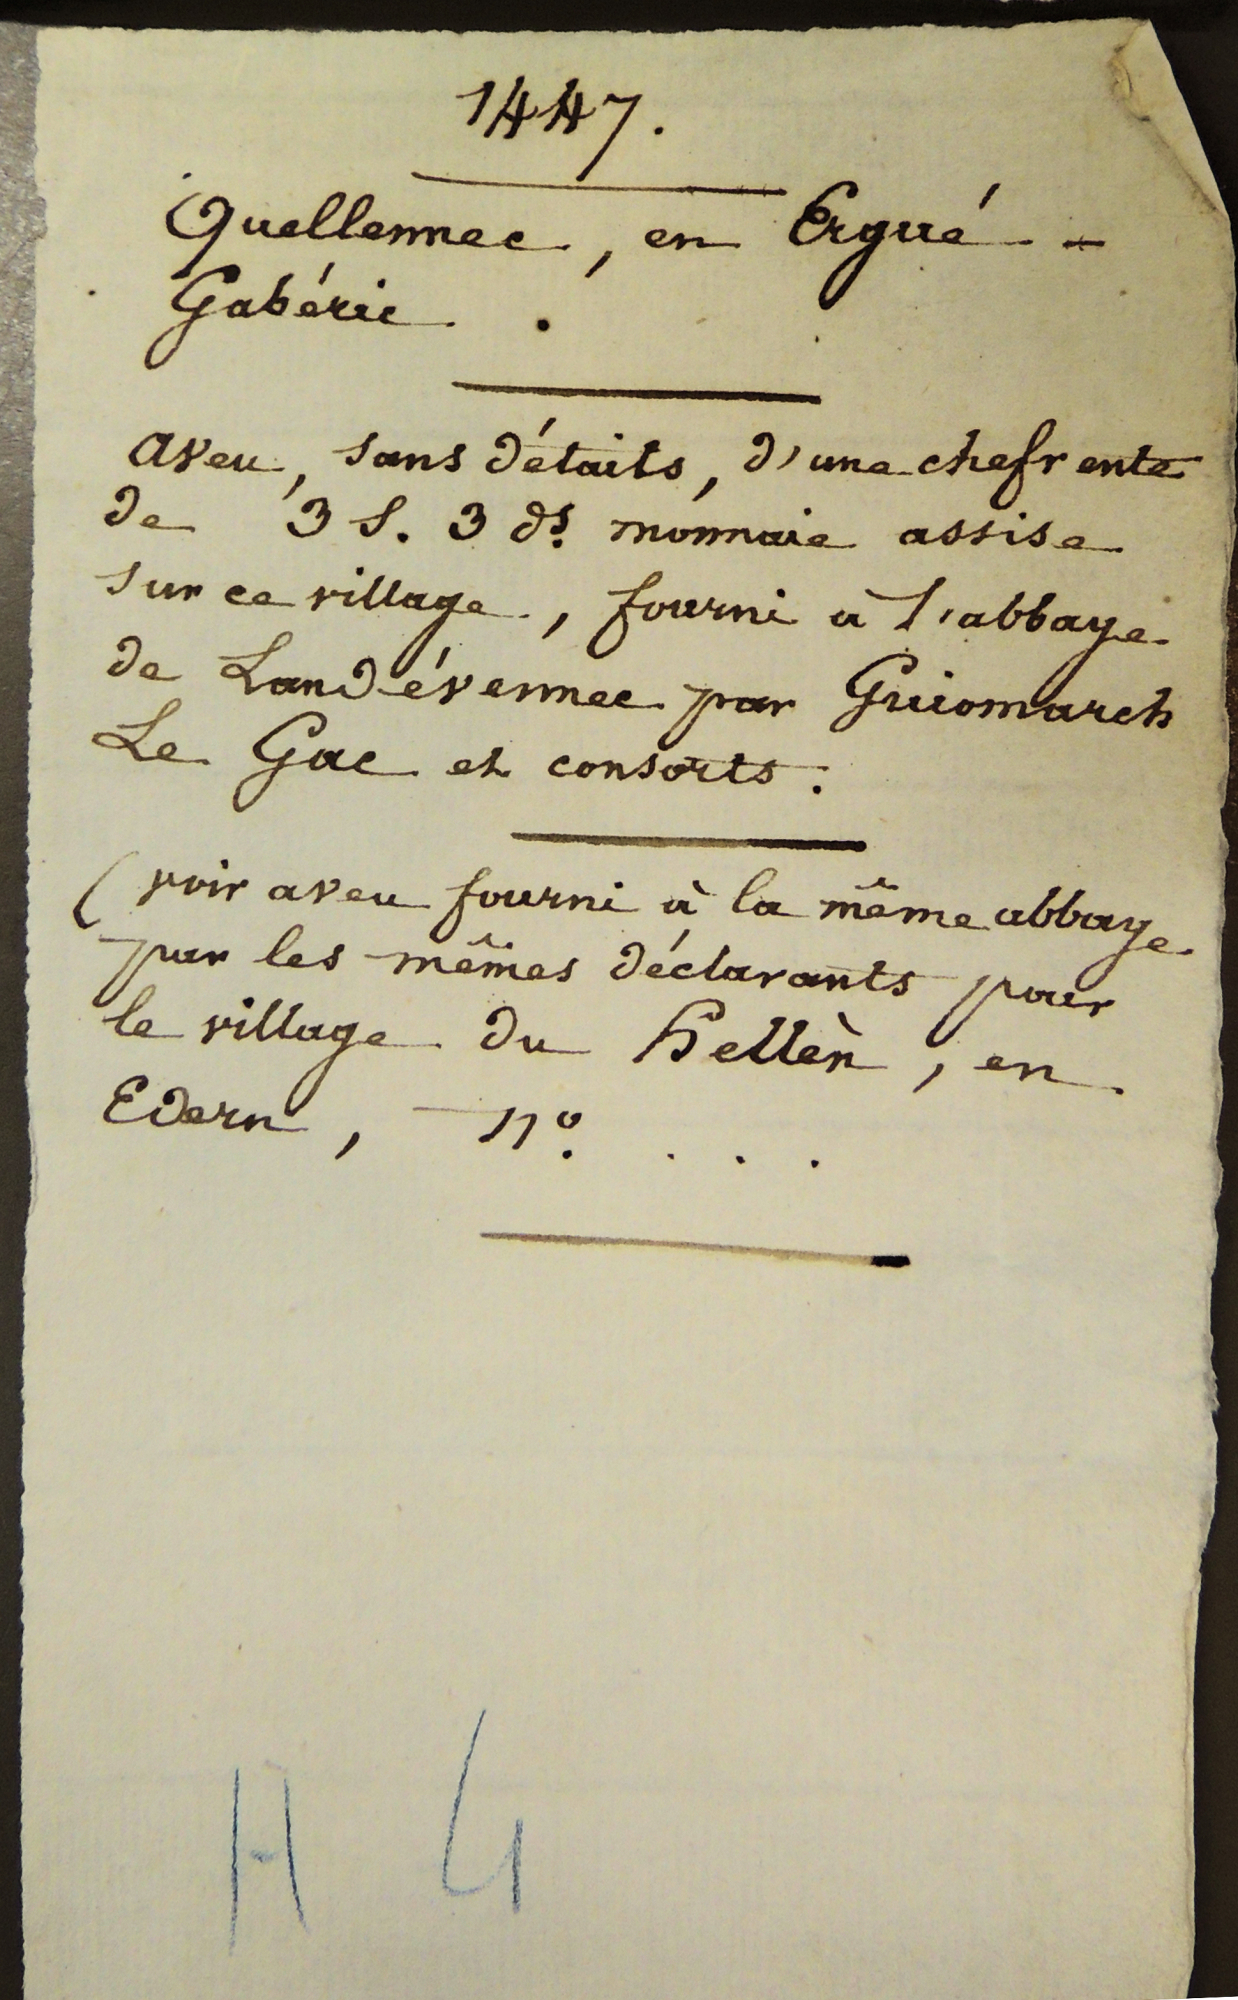 1447.
Quellennec, en Ergué-
Gabéric.
aveu, sans détails, d'une chefrente
de 3 s. 3 ds. monnaie assise
sur ce village, fourni à l'abbaye
de Landévennec par Guiomarch
Le Gac et consorts.
(voir aveu fourni à la même abbaye
par les mêmes déclarants pour
le village du Hellèn, en
Edern, n°. . . .
H 4